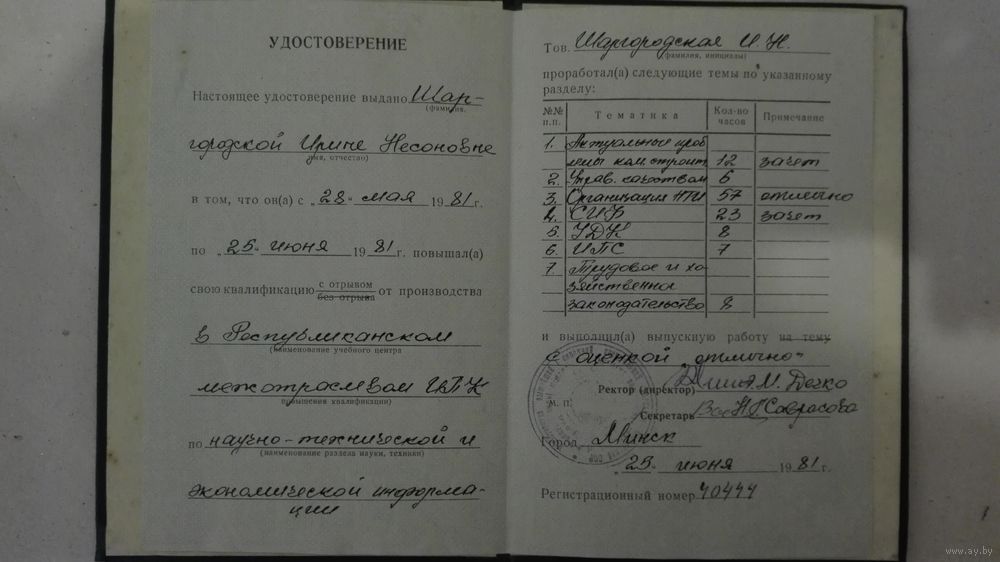 УДОСТОВЕРЕНИЕ
Настоящее удостоверение выдано Шар-
(фамилия,
городской Ирине Несоновне
имя, отчество)
в том, что он(а) с „28“ мая 1981 г.
по „25“ июня 1981 г. повышал(а)
свою квалификацию с отрывом без отрыва от производства
в Республиканском
(наименование учебного центра
межотраслевом ИПК
повышения квалификации)
по научно-технической и
(наименование раздела науки, техники)
экономической информа-
ции
Тов. Шаргородская И.Н.
(фамилия, инициалы)
проработал(а) следующие темы по указанному
разделу:
№№ п.п. Тематика Кол-во часов Примечание
1. Актуальные проб
лемы ком. строит 12 зачет
2. Управ. качеством 6
3. Организация НТИ 57 отлично
4. СИФ 23 зачет
5. УДК 8
6. ИПС 7
7. Трудовое и хо-
зяйственное
законодательство 8
и выполнил(а) выпускную работу на тему
с оценкой „отлично“
Ректор (директор) М. Дечко
М. п.
Секретарь Н.Г. Саврасова
Город Минск
„25“ июня 1981 г.
Регистрационный номер 40444
www.ay.by